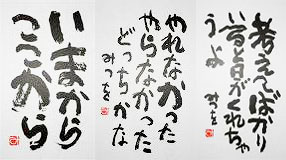 いまから
ここから
やれなかった
やらなかった
どっちかな
みつを
考えてばかり
いると日がくれちゃ
うよ
みつを